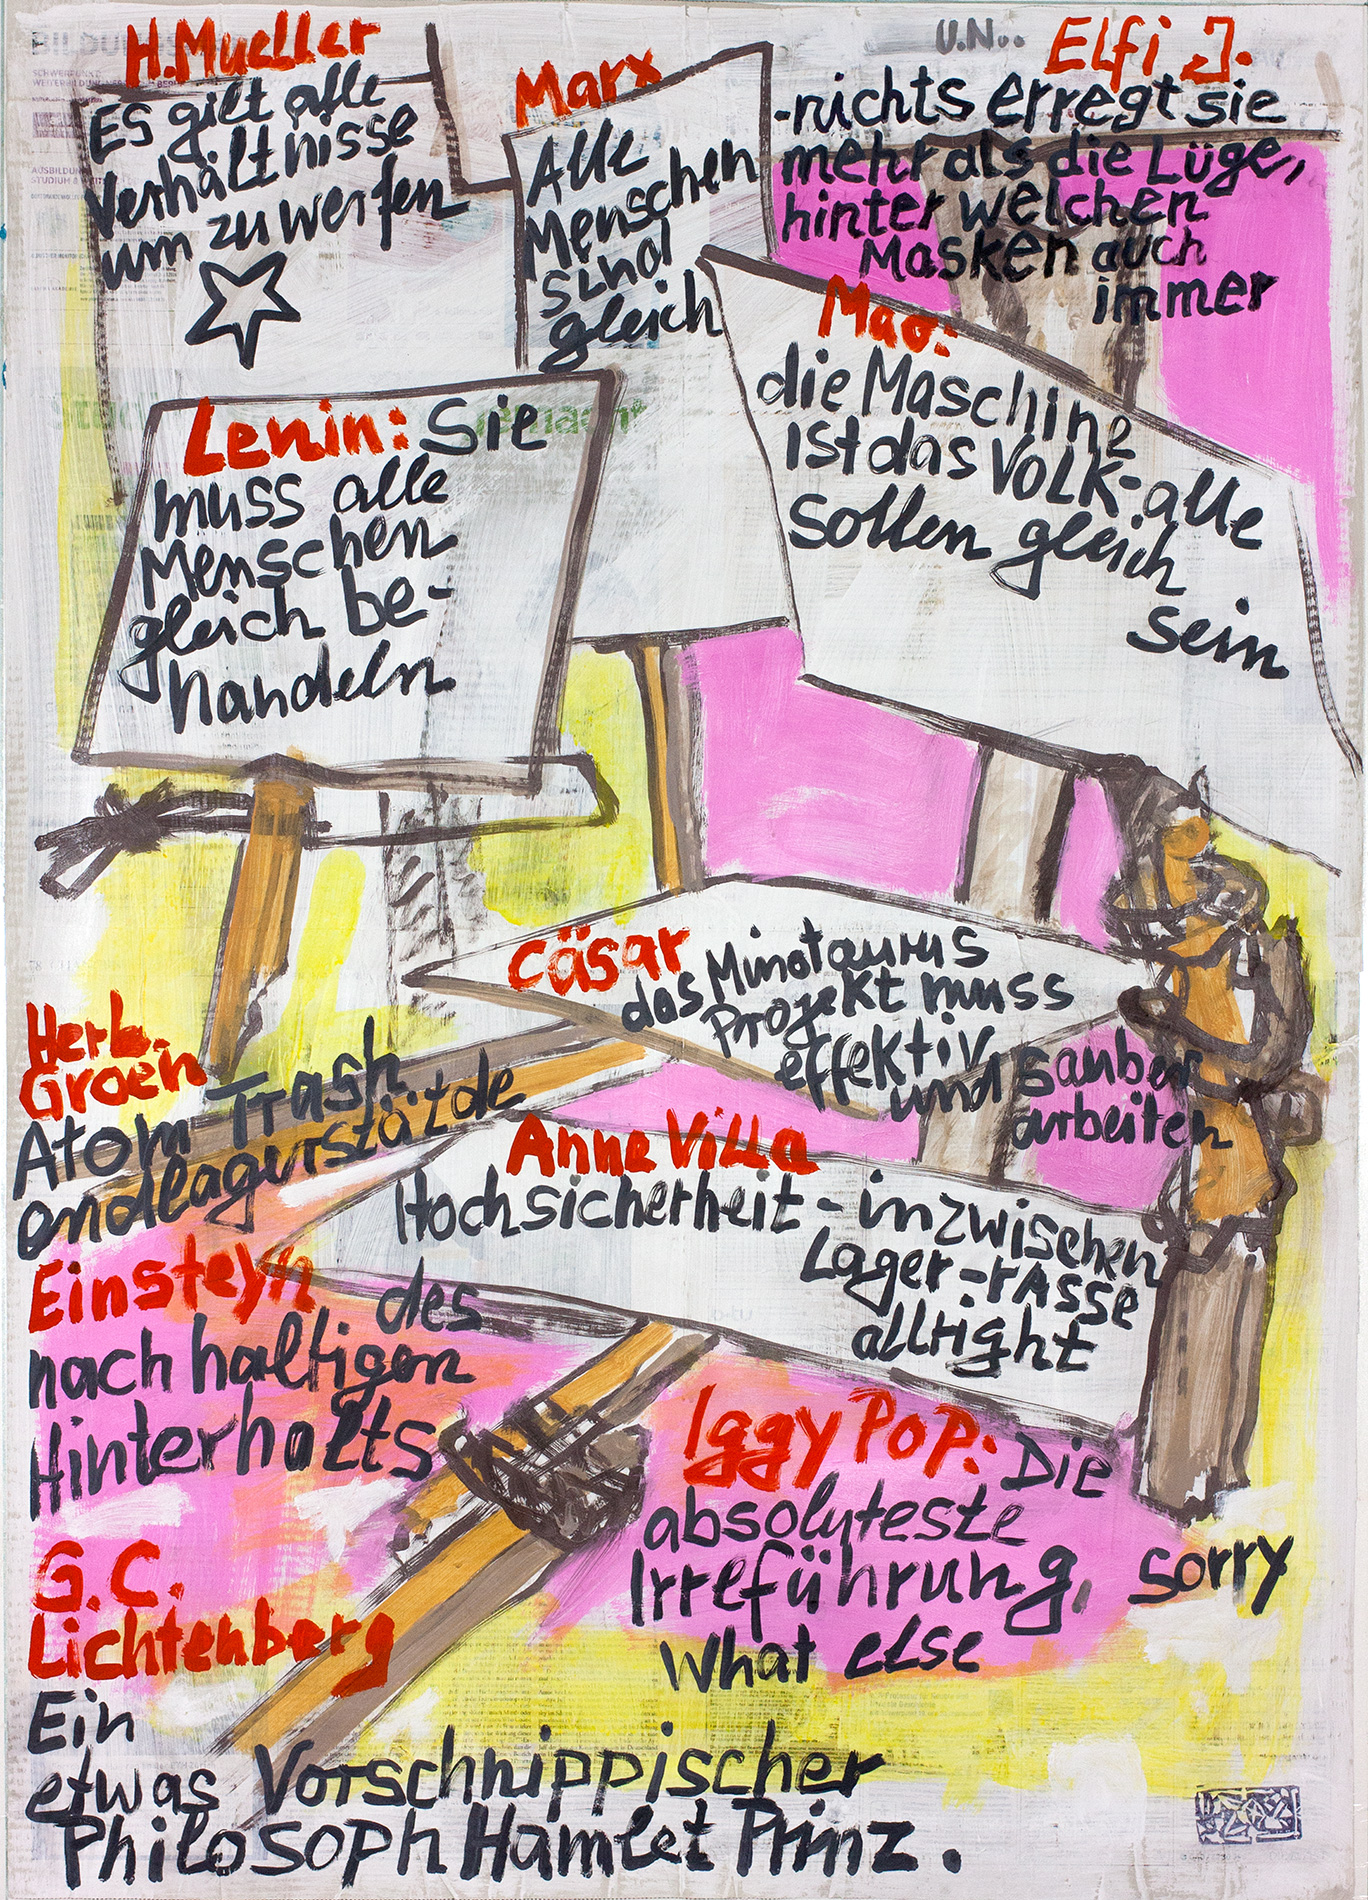 H. Mueller
Es gilt alle
Verhältnisse
um zu werfen
Marx
Alle
Menschen
sind
gleich
U.N..
Elfi J.
-nichts erregt sie
mehr als die Lüge,
hinter welchen
Masken auch
immer
Mao:
die Maschine
ist das Volk-alle
sollen gleich
sein
Lenin: Sie
muss alle
Menschen
gleich be-
handeln
Cäsar
das Minotaurus
Projekt muss
effektiv
und sauber
arbeiten
Herb.
Groen
Atom Trash
ondlagurstätde
Anne Villa
Hochsicherheit - inzwischen
Lager-rAsse
allright
Einsteyn
des
nachhaltigen
Hinterhalts
Iggy Pop: Die
absoluteste
Irreführung, sorry
What else
G.C.
Lichtenberg
Ein
etwas Vorschnippischer
Philosoph Hamlet Prinz.